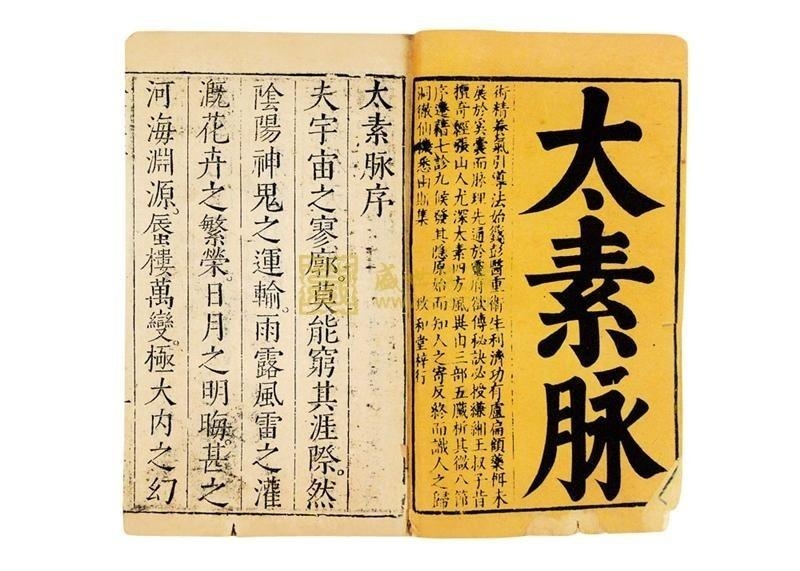 太素脉
術精養氣引導法始籛彭醫重衛生利濟功有盧扁頷藥餌本
展於奚囊而脉理先通於靈府欲傳秘訣必授縑緗王叔子昔
撰奇經張山人尤深太素四方風異由三部五臟析其微八節
序遷藉七診九候發其隱原始而知人之寄反終而識人之歸
洞徹仙機悉由斯集 致和堂梓行
太素脉序
夫宇宙之寥廓。莫能窮其涯際。然
陰陽神鬼之運輸。雨露風雷之灌
溉花卉之繁榮。日月之明晦。甚之
河海淵源。蜃樓萬變。極大内之幻